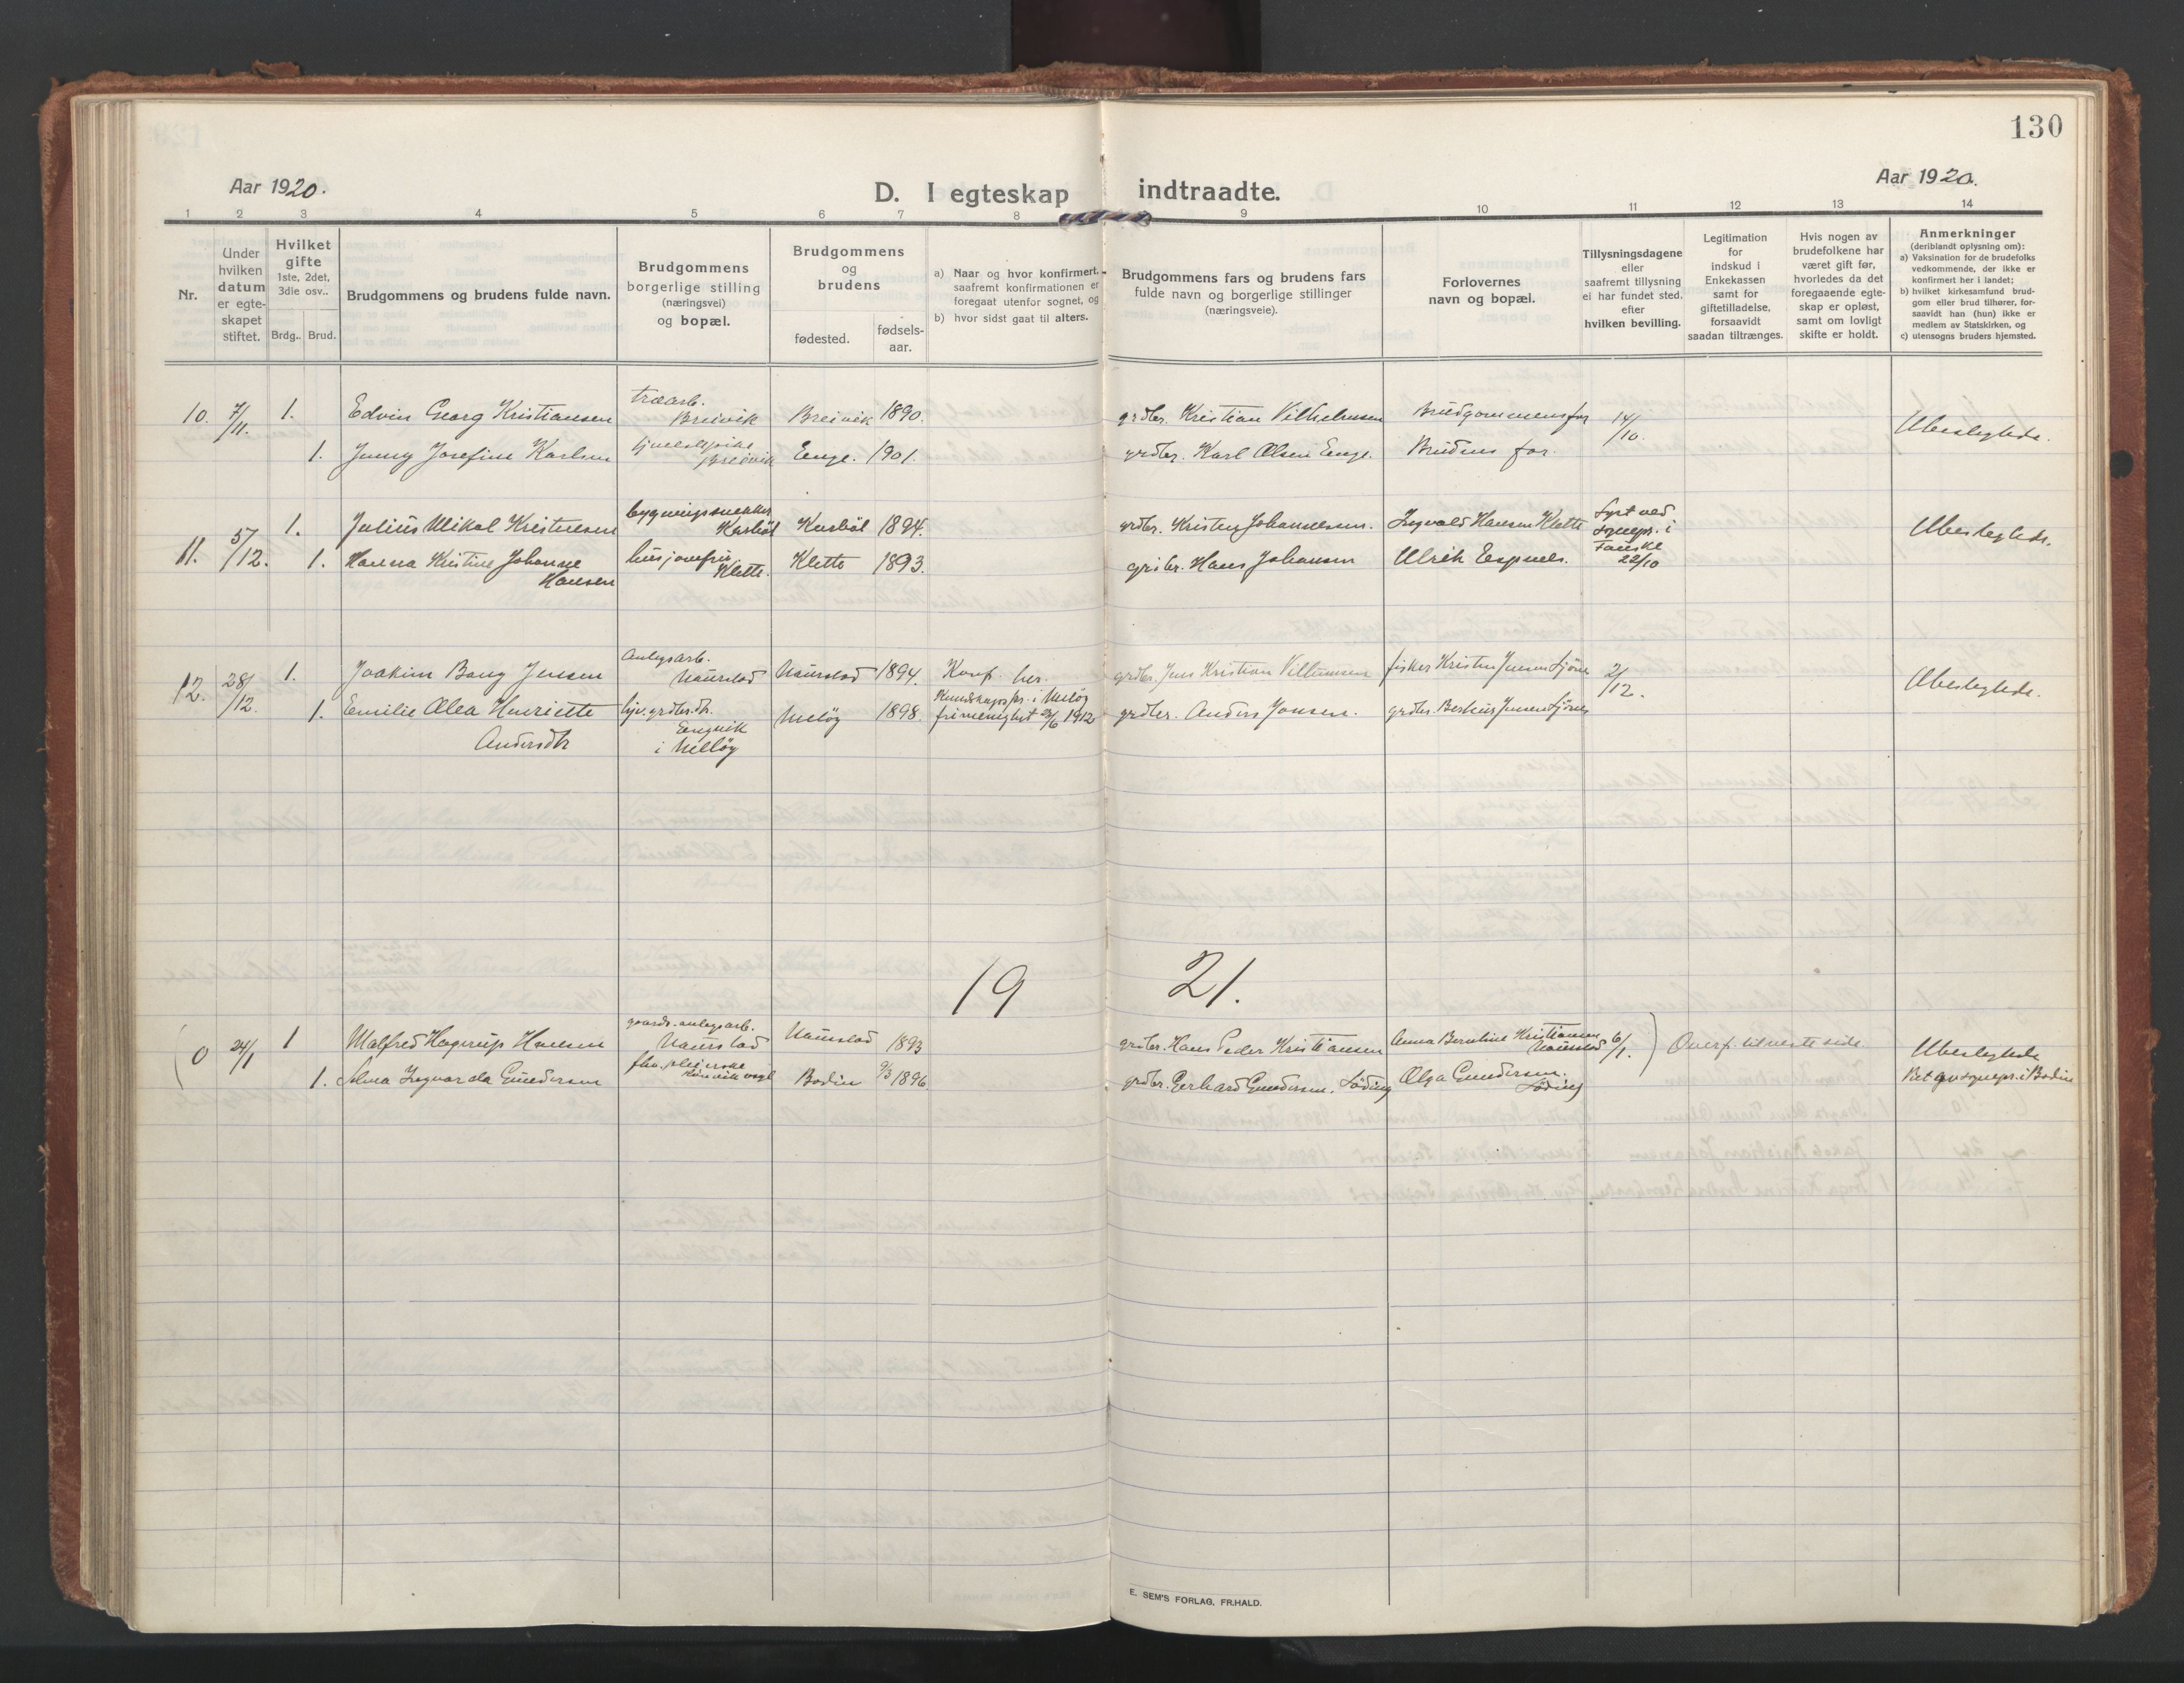 130
Aar 1920.
D. I egteskap indtraadte.
Aar 1920.
1 2 3 4 5 6 7 8 9 10 11 12 13 14
Nr.
Under
hvilken
datum
er egte-
skapet
stiftet.
Hvilket
gifte
1ste, 2det,
3die osv..
Brdg.. Brud.
Brudgommens og brudens fulde navn.
Brudgommens
borgerlige stilling
(næringsvei)
og bopæl.
Brudgommens
og
brudens
fødested.
fødsels-
aar.
a) Naar og hvor konfirmert,
saafremt konfirmationen er
foregaat utenfor sognet, og
b) hvor sidst gaat til alters.
Brudgommens fars og brudens fars
fulde navn og borgerlige stillinger
(næringsveie).
Forlovernes
navn og bopæl.
Tillysningsdagene
eller
saafremt tillysning
ei har fundet sted.
efter
hvilken bevilling.
Legitimation
for
indskud i
Enkekassen
samt for
giftetilladelse,
forsaavidt
saadan tiltrænges.
Hvis nogen av
brudefolkene har
været gift før,
hvorledes da det
foregaaende egte-
skap er opløst,
samt om lovligt
skifte er holdt.
Anmerkninger
(deriblandt oplysning om):
a) Vaksination for de brudefolks
vedkommende, der ikke er
konfirmert her i landet;
b) hvilket kirkesamfund brud-
gom eller brud tilhører, for-
saavidt han (hun) ikke er
medlem av Statskirken, og
c) utensogns bruders hjemsted.
10. 7/11. 1. Edvin Georg Kristiansen træarb. Breivik Breivik 1890. grdbr. Kristian Vilhelmsen Brudgommens far 14/10. Ubeslegtede.
1. Jenny Josefine Karlsen Breivik Enge. 1901. grdbr. Karl Olsen Enge. Brudens far.
11. 5/12. 1. Julius Mikal Kristensen bygningssnekker 1894. grdbr. Kristen Johannesen. Ingvald Hansen Klette Lyst ved sognepr. i Fauske 22/10 Ubeslegtede.
1. Hanna Kristine Johanne
Hansen Klette. Klette 1893. grdbr. Hans Johansen Ulrik Espnes.
12. 28/12. 1. Joakim Bang Jensen Anlegsarb.
Naurstad Naurstad 1894. Konf. her. grdbr. Jens Kristian Villumsen fisker Kristen Jensen 2/12. Ubeslegtede.
1. Emilie Olea Henriette
Andersdtr hjv. grdbr. dtr.
Engvik
i Meløy Meløy 1898. Kundskapspr. i Meløy
frimenighet 1912 grdbr. Anders Jonsen. grdbr. Jensen
19 21.
( 0 24/1 1 Malfred Hagerup Hansen gaardr. anlegsarb.
Naurstad Naurstad 1893 grdbr. Hans Peder Kristiansen Anna Berntine Kristiansen
Naurstad 6/1. ) Overf. til neste side. Ubeslegtede
1. Selma Ingvarda Gundersen Bodin 1896. grdbr. Gerhard Gundersen. Løding Olga Gundersen.
Løding sognepr. i Bodin
E. SEM'S FORLAG, FR.HALD.